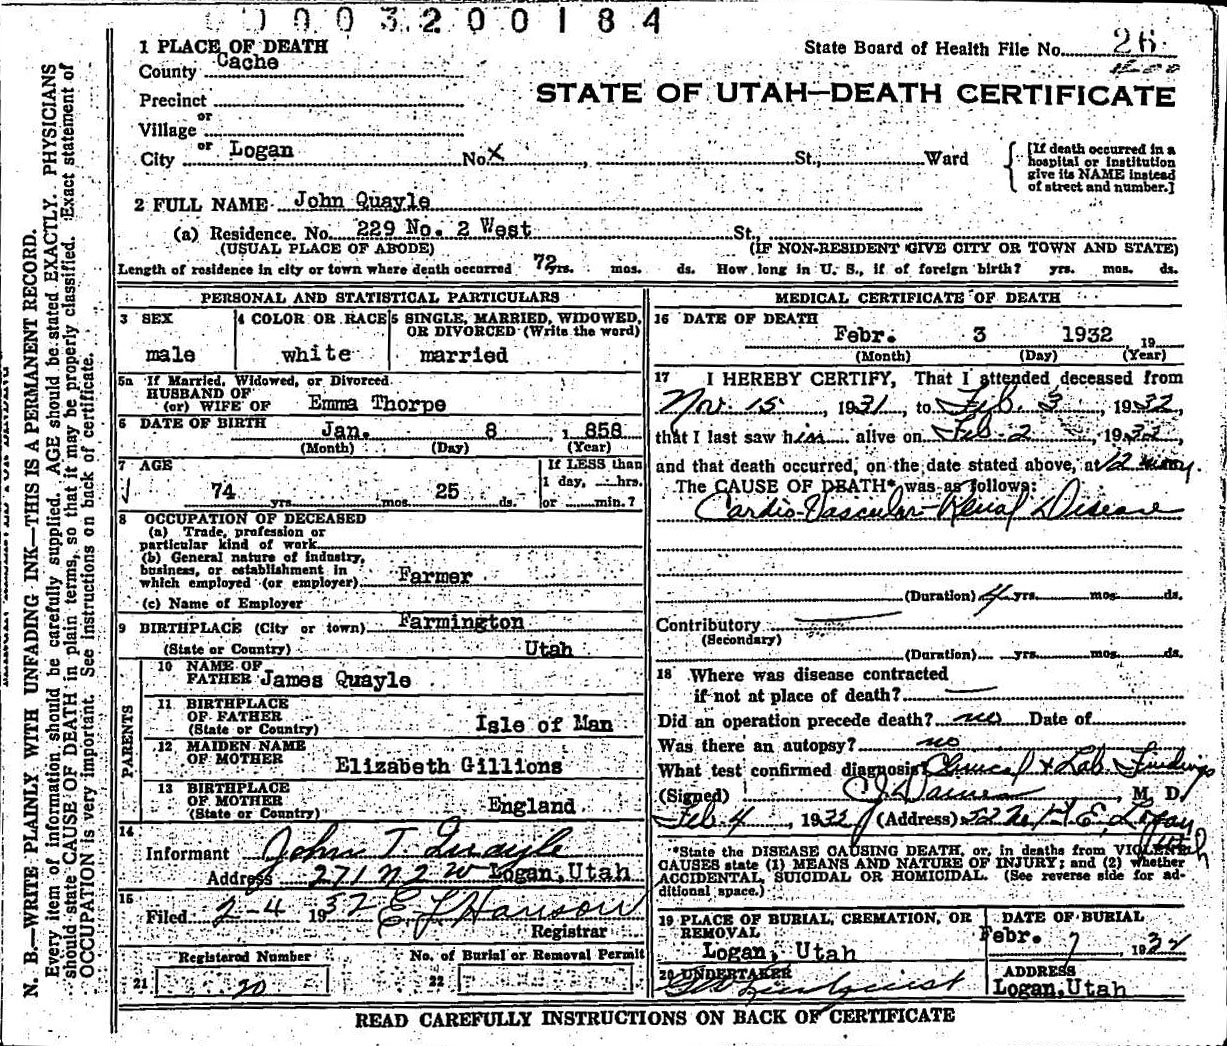 0003200184
1 PLACE OF DEATH
State Board of Health File No. 26
County Cache
STATE OF UTAH—DEATH CERTIFICATE
Precinct
or
Village
or
City Logan No. X St., Ward
[If death occurred in a hospital or institution give its NAME instead of street and number.]
2 FULL NAME John Quayle
(a) Residence. No. 229 No. 2 West St.,
(USUAL PLACE OF ABODE) (IF NON-RESIDENT GIVE CITY OR TOWN AND STATE)
Length of residence in city or town where death occurred 72 yrs. mos. ds. How long in U. S., if of foreign birth? yrs. mos. ds.
PERSONAL AND STATISTICAL PARTICULARS
3 SEX
male
4 COLOR OR RACE
white
5 SINGLE, MARRIED, WIDOWED, OR DIVORCED (Write the word)
married
5a If Married, Widowed, or Divorced
HUSBAND OF
(or) WIFE OF Emma Thorpe
6 DATE OF BIRTH Jan. 8, 1858
(Month) (Day) (Year)
7 AGE
74 yrs. mos. 25 ds.
If LESS than
1 day, hrs.
or min.?
8 OCCUPATION OF DECEASED
(a) Trade, profession or
particular kind of work
(b) General nature of industry,
business, or establishment in
which employed (or employer) Farmer
(c) Name of Employer
9 BIRTHPLACE (City or town) Farmington
(State or Country) Utah
PARENTS
10 NAME OF
FATHER James Quayle
11 BIRTHPLACE
OF FATHER
(State or Country) Isle of Man
12 MAIDEN NAME
OF MOTHER Elizabeth Gillions
13 BIRTHPLACE
OF MOTHER
(State or Country) England
14
Informant John T. Quayle
Address 271 N 2 W Logan, Utah
15
Filed 2-4 1932 E L Hanson
Registrar
Registered Number No. of Burial or Removal Permit
21 20 22
MEDICAL CERTIFICATE OF DEATH
16 DATE OF DEATH
Febr. 3 1932 19
(Month) (Day) (Year)
17 I HEREBY CERTIFY, That I attended deceased from
Nov. 15, 1931, to Feb. 3, 1932,
that I last saw him alive on Feb. 2, 1932,
and that death occurred, on the date stated above, at 12
The CAUSE OF DEATH* was as follows:
Cardio-Vascular-Renal Disease
(Duration) 4 yrs. mos. ds.
Contributory
(Secondary)
(Duration) yrs. mos. ds.
18 Where was disease contracted
if not at place of death?
Did an operation precede death? no Date of
Was there an autopsy? no
What test confirmed diagnosis Clinical & Lab. Findings
(Signed) M. D.
Feb 4, 1932 (Address) E, Logan
*State the DISEASE CAUSING DEATH, or, in deaths from VIOLENT
CAUSES state (1) MEANS AND NATURE OF INJURY; and (2) whether
ACCIDENTAL, SUICIDAL OR HOMICIDAL. (See reverse side for ad-
ditional space.)
19 PLACE OF BURIAL, CREMATION, OR
REMOVAL
Logan, Utah
DATE OF BURIAL
Febr. 7 1932
20 UNDERTAKER
Lindquist
ADDRESS
Logan, Utah
READ CAREFULLY INSTRUCTIONS ON BACK OF CERTIFICATE
N. B.—WRITE PLAINLY WITH UNFADING INK—THIS IS A PERMANENT RECORD.
Every item of information should be carefully supplied. AGE should be stated EXACTLY. PHYSICIANS
should state CAUSE OF DEATH in plain terms, so that it may be properly classified. Exact statement of
OCCUPATION is very important. See Instructions on back of certificate.